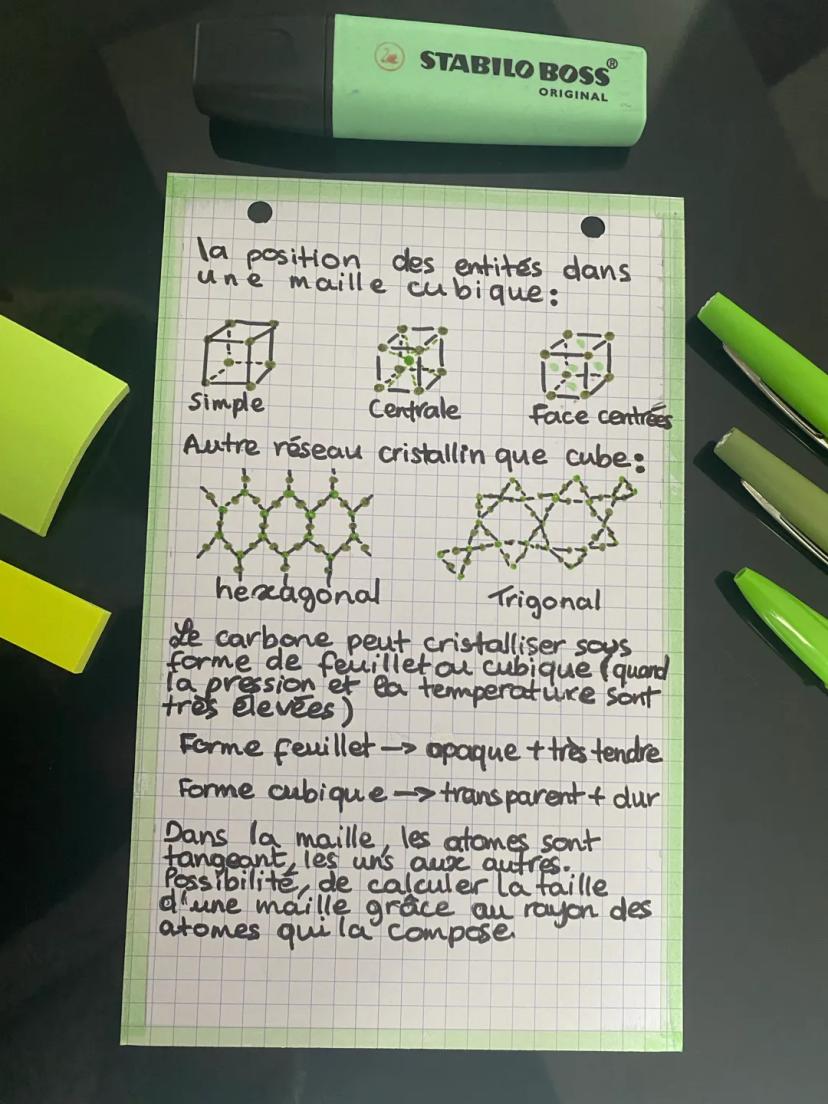 STABILO BOSS®
ORIGINAL
la position des entités dans
une maille cubique :
Simple
Centrale
Face centrées
Autre réseau cristallin que cube :
hexagonal
Trigonal
Le carbone peut cristalliser sous
forme de feuillet ou cubique (quand
la pression et la temperature sont
très élevées)
Forme feuillet → opaque + très tendre
Forme cubique → transparent + dur
Dans la maille, les atomes sont
tangeant, les uns aux autres.
Possibilité, de calculer la taille
d'une maille grâce au rayon des
atomes qui la compose.